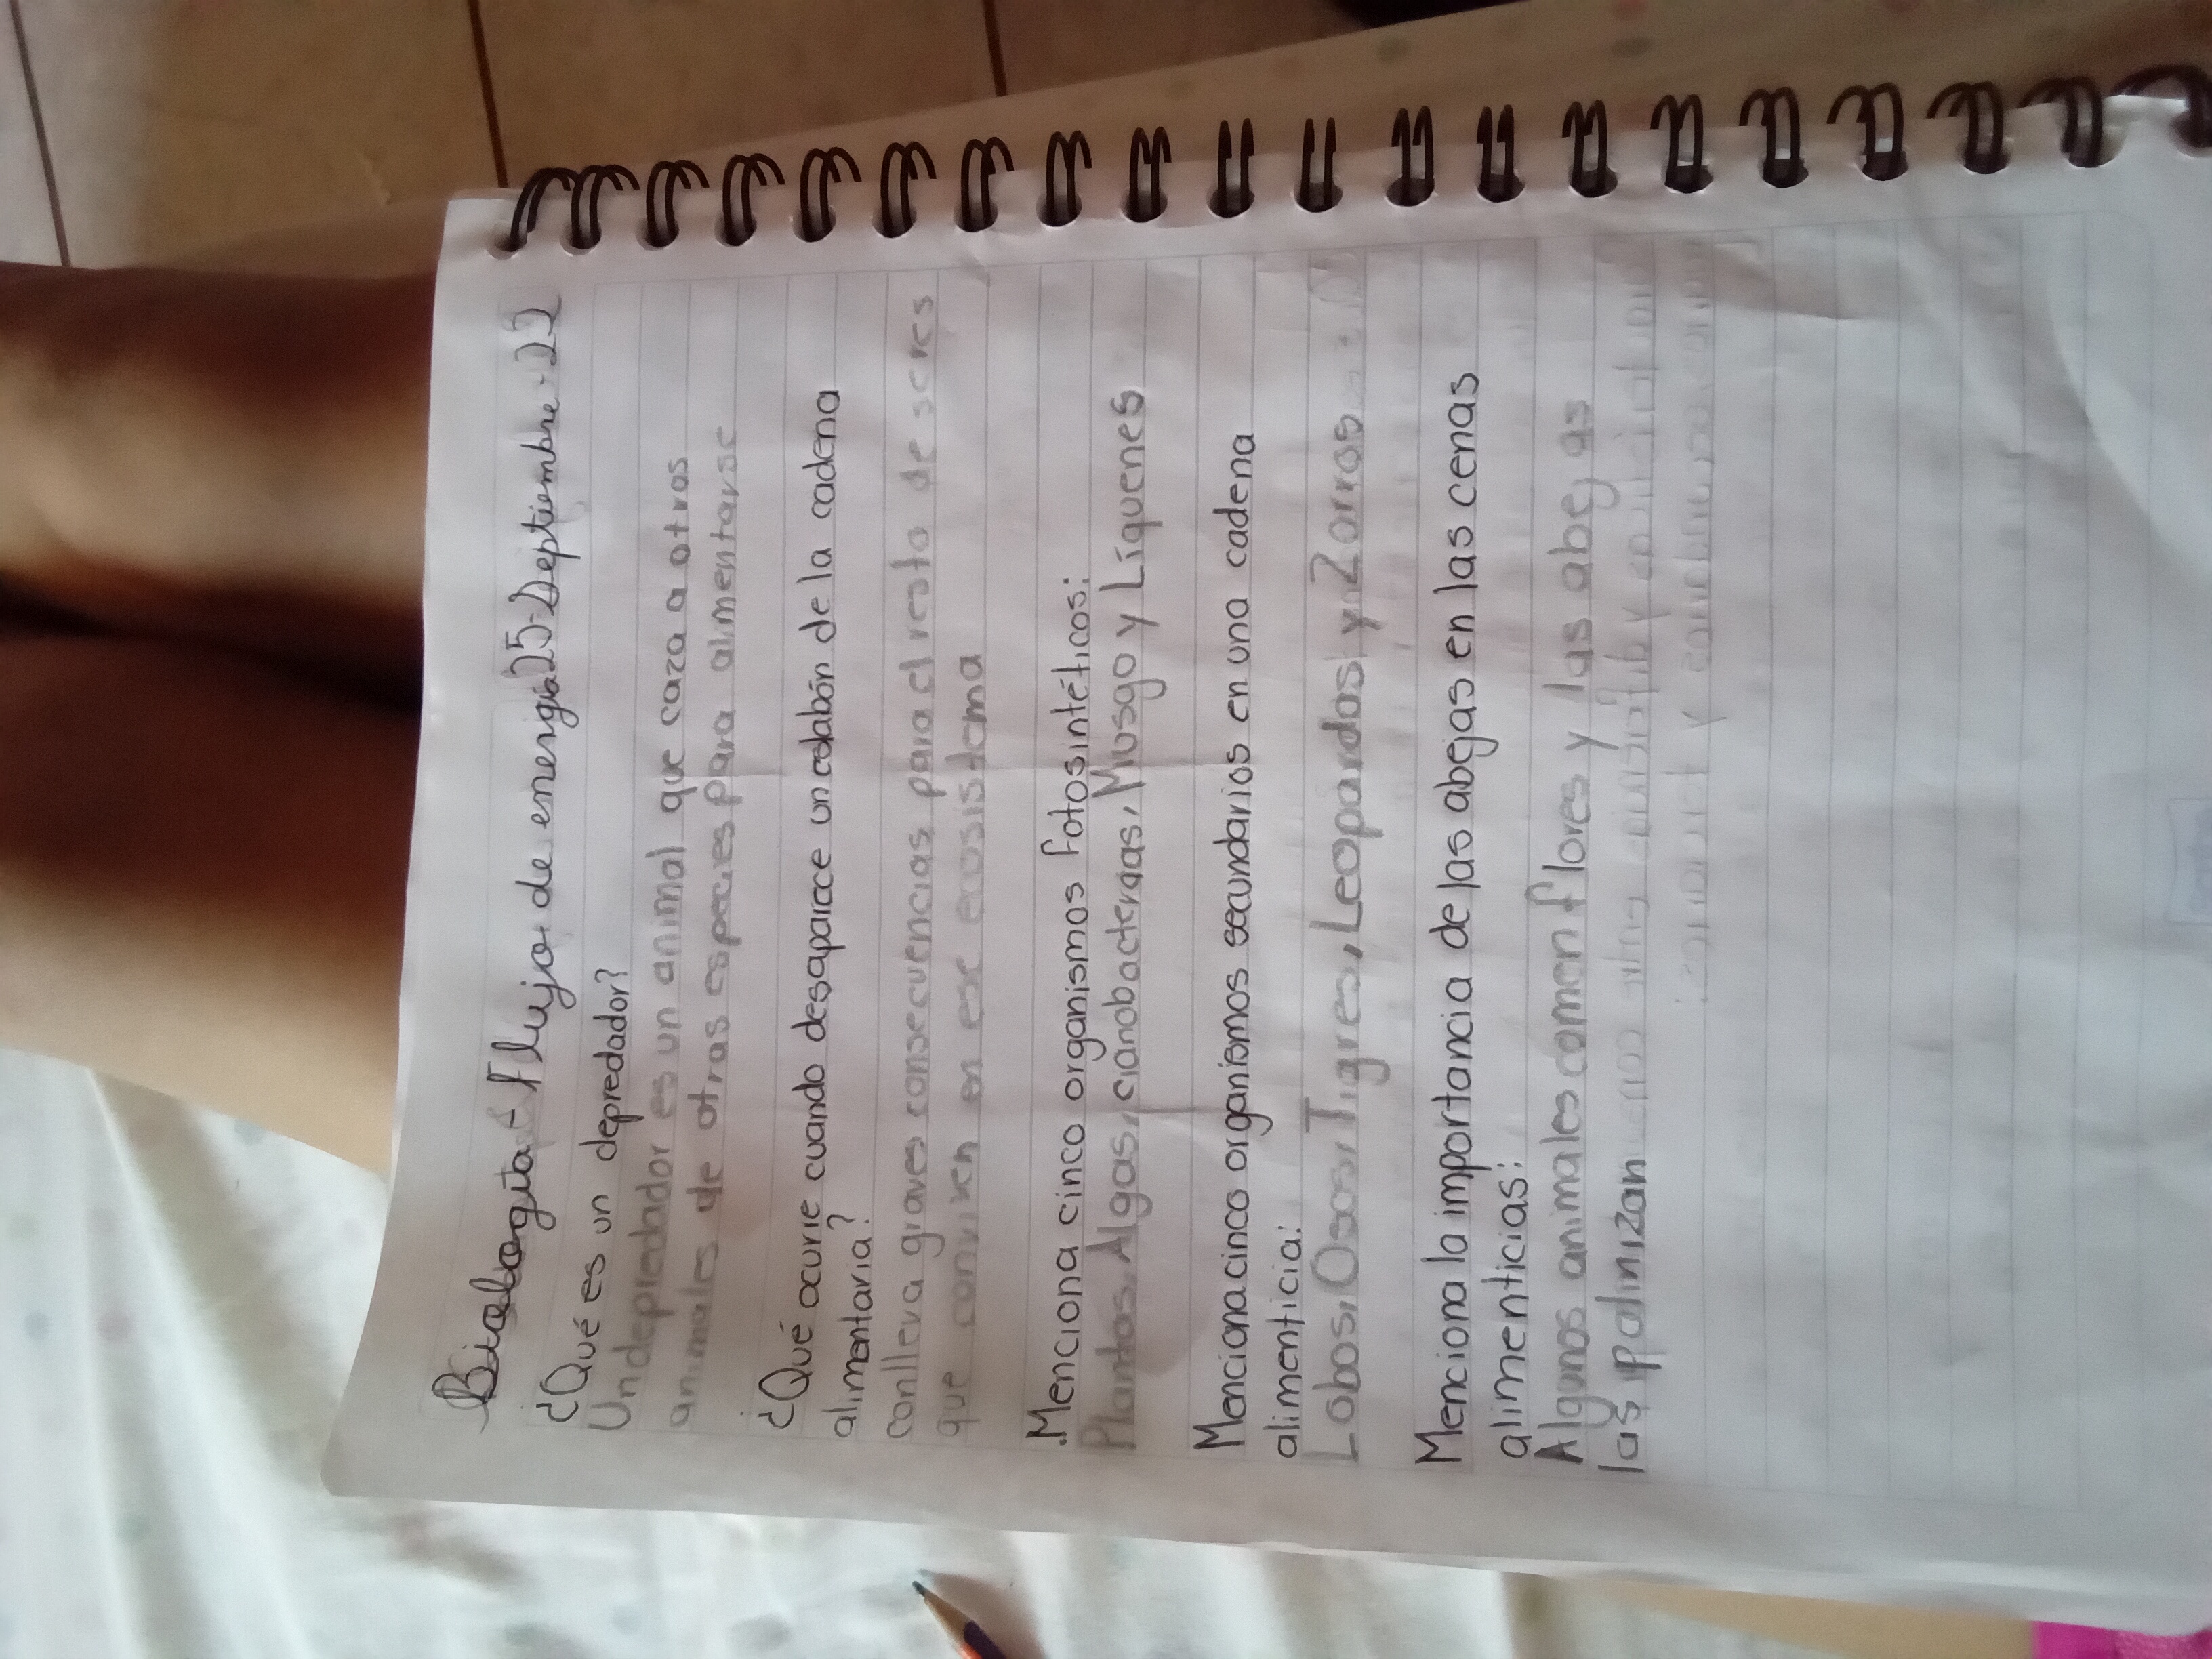 Biologita- Flujo de energía 25-Septiembre-22
¿Qué es un depredador?
Un depredador es un animal que caza a otros
animales de otras especies para alimentarse
¿Qué ocurre cuando desaparece un eslabón de la cadena
alimentaria?
conlleva graves consecuencias para el resto de seres
que conviven en ese ecosistema
.Menciona cinco organismos fotosintéticos:
Plantas, Algas, cianobacterias, Musgo y Líquenes
Menciona cinco organismos secundarios en una cadena
alimenticia:
Lobos, Osos, Tigres, Leopardos y Zorros
Menciona la importancia de las abejas en las cenas
alimenticias:
Algunos animales comen flores y las abejas
las polinizan